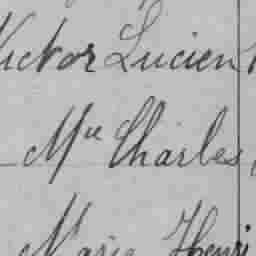 Victor Lucien
Mll Charles
Marie Henri